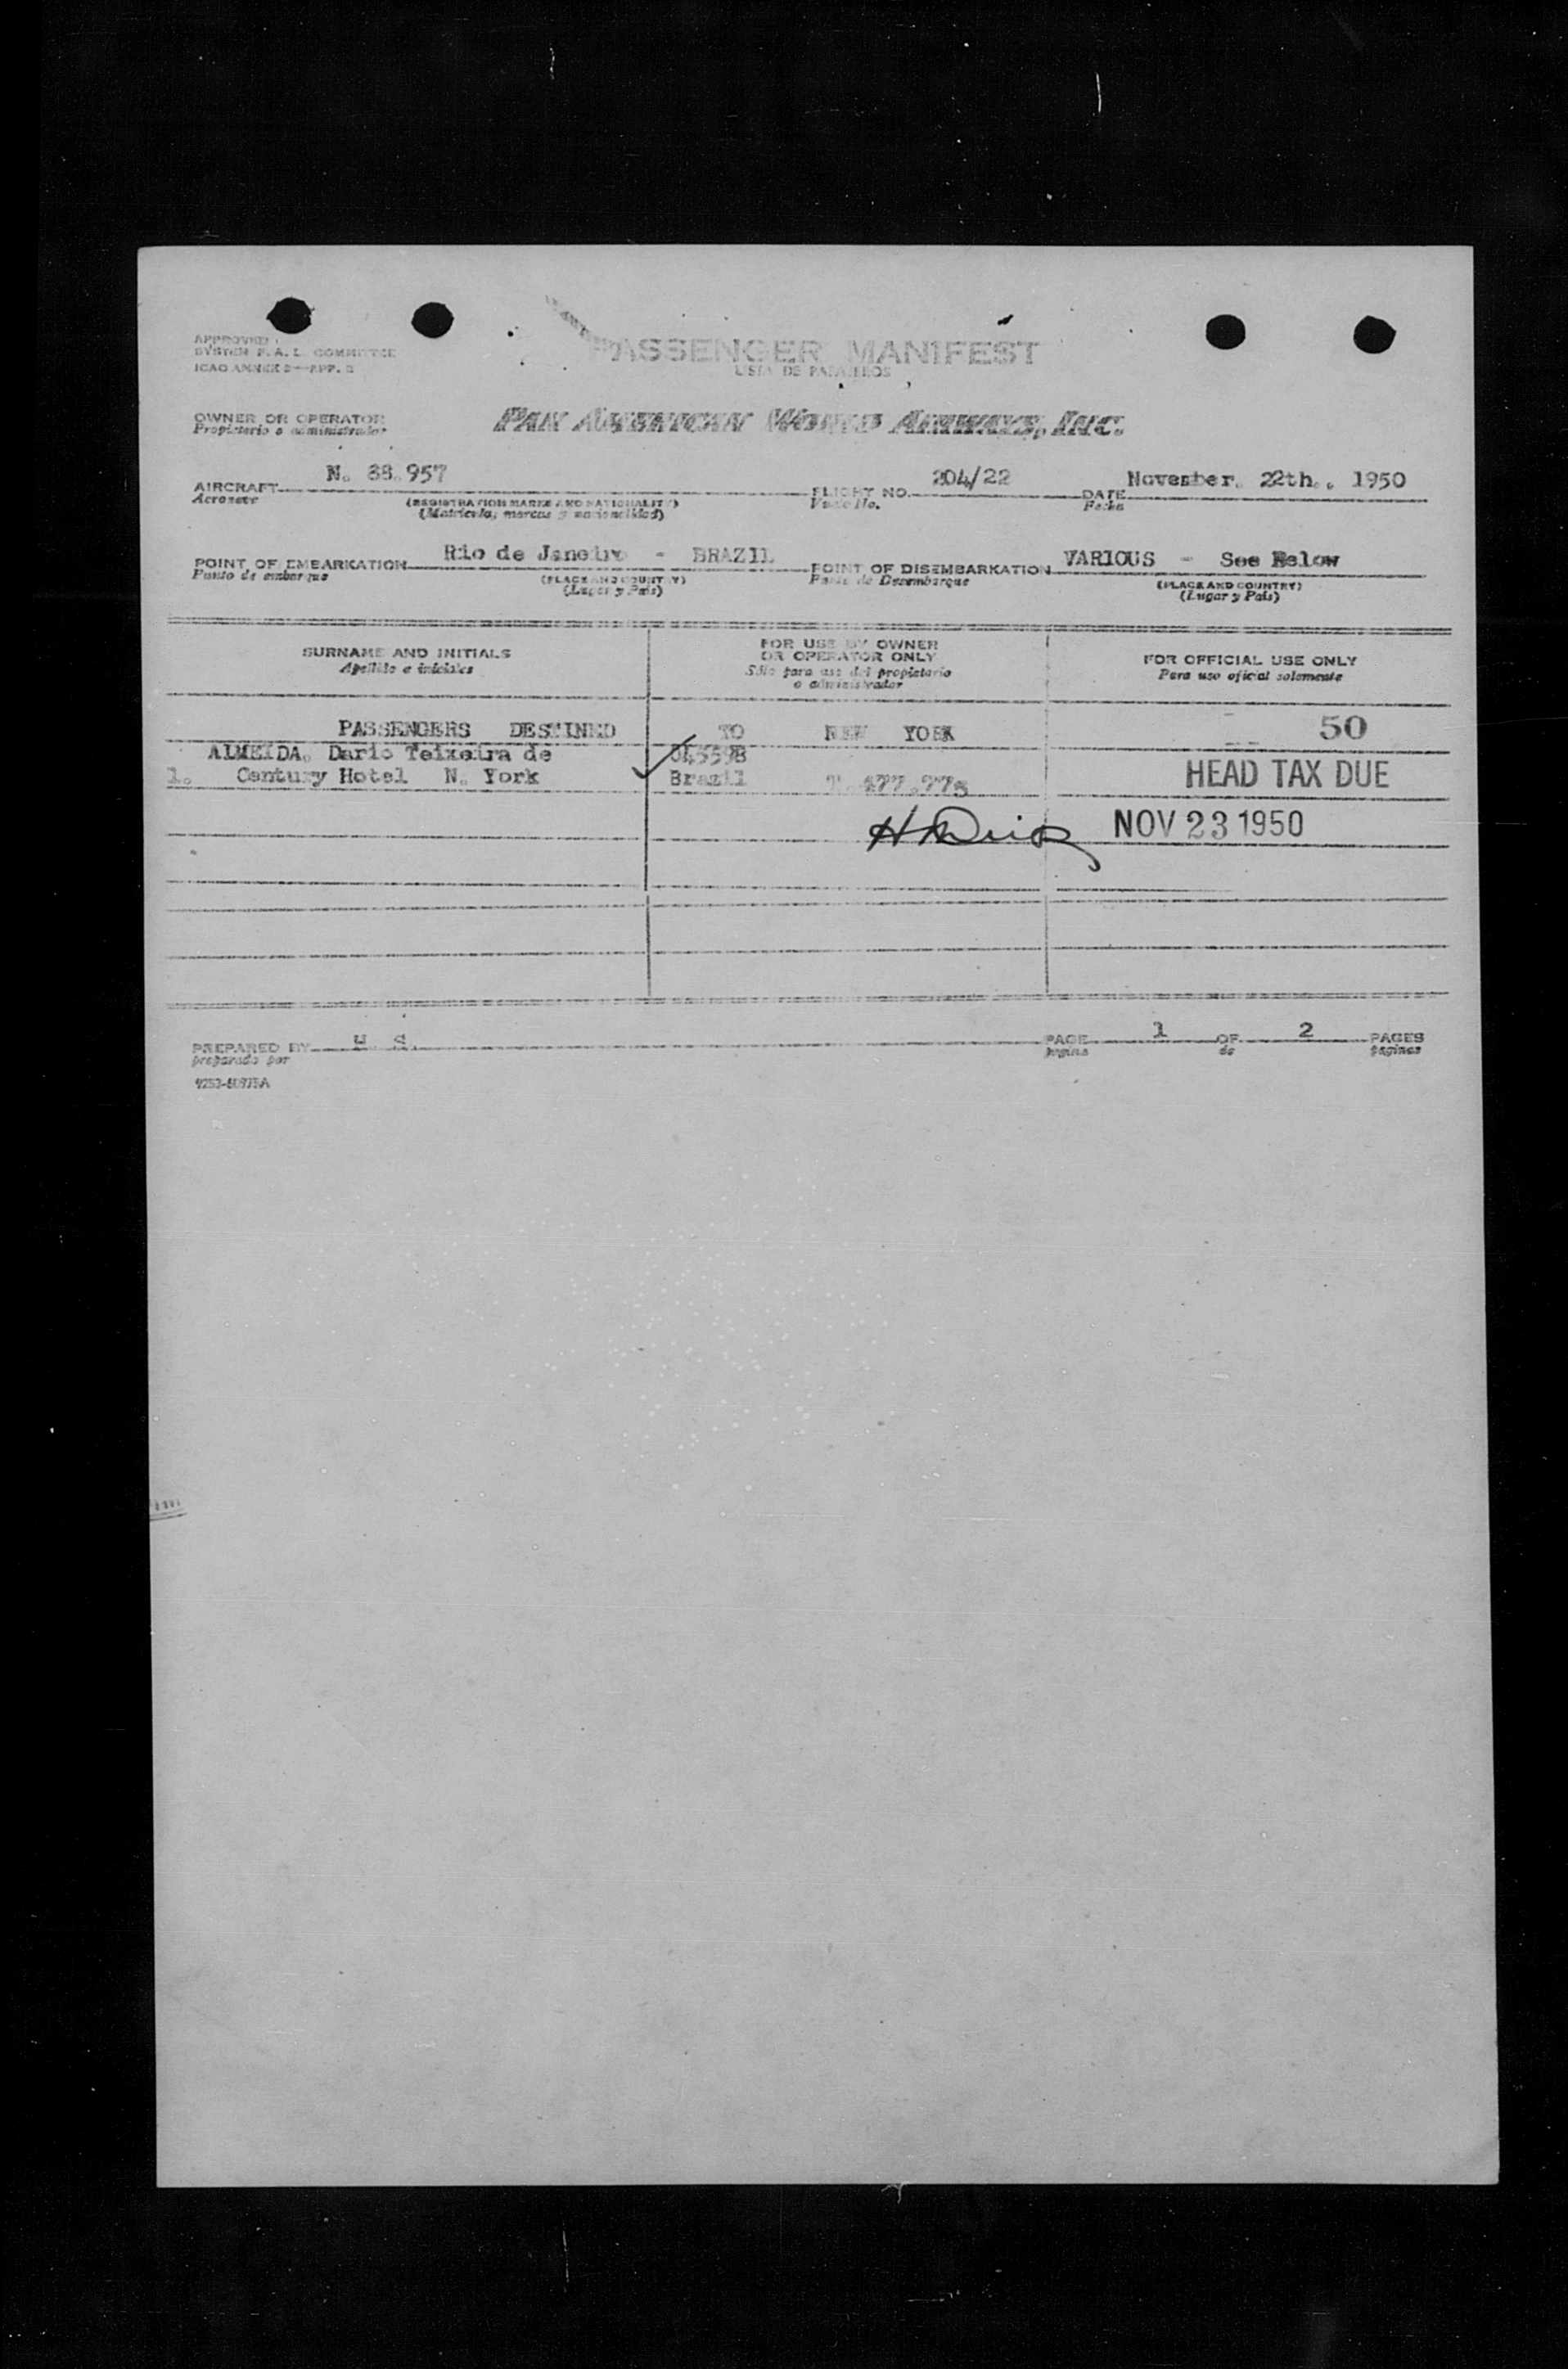 APPROVED
SYSTEM F. A. L. COMMITTEE
ICAO ANNEX 9—APP. 2
PASSENGER MANIFEST
LISTA DE PASAJEROS
OWNER OR OPERATOR
Propietario o administrador
PAN AMERICAN WORLD AIRWAYS, INC.
AIRCRAFT N. 88.957 FLIGHT NO. 204/22 DATE November. 22th., 1950
Aeronave (REGISTRATION MARKS AND NATIONALITY) Vuelo No. Fecha
(Matricula, marcas y nacionalidad)
POINT OF EMBARKATION Rio de Janeiro - BRAZIL POINT OF DISEMBARKATION VARIOUS - See Below
Punto de embarque (PLACE AND COUNTRY) Punto de Desembarque (PLACE AND COUNTRY)
(Lugar y País) (Lugar y País)
SURNAME AND INITIALS
Apellido e iniciales
FOR USE BY OWNER
OR OPERATOR ONLY
Sólo para uso del propietario
o administrador
FOR OFFICIAL USE ONLY
Para uso oficial solamente
PASSENGERS DESTINED TO NEW YORK 50
ALMEIDA. Dario Teixeira de
1. Century Hotel N. York Brazil HEAD TAX DUE
NOV 23 1950
PREPARED BY PAGE 1 OF 2 PAGES
preparado por pagina de paginas